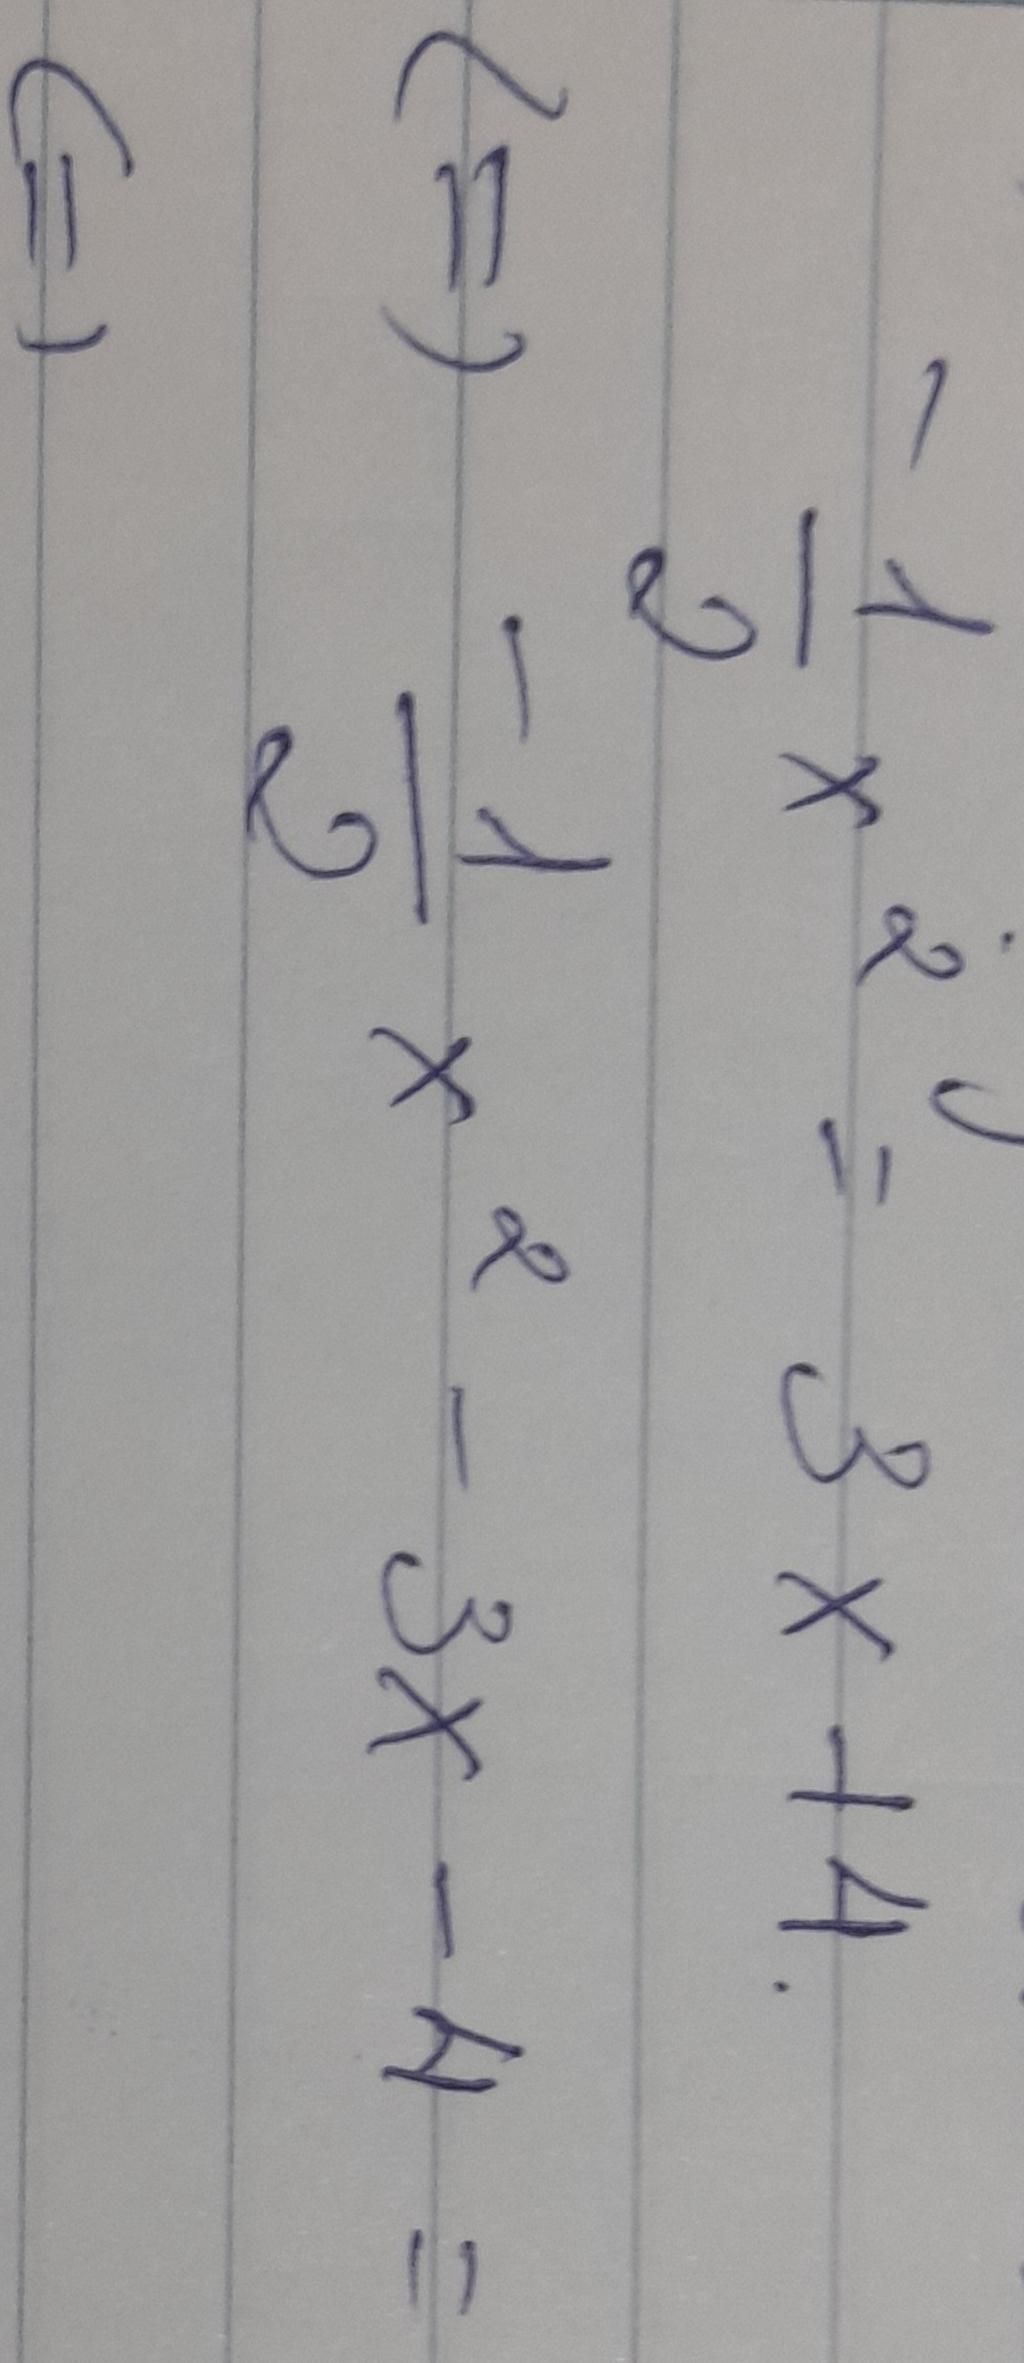 - 1/2 x² = 3x + 4.
(=) - 1/2 x² - 3x - 4 =
(=)